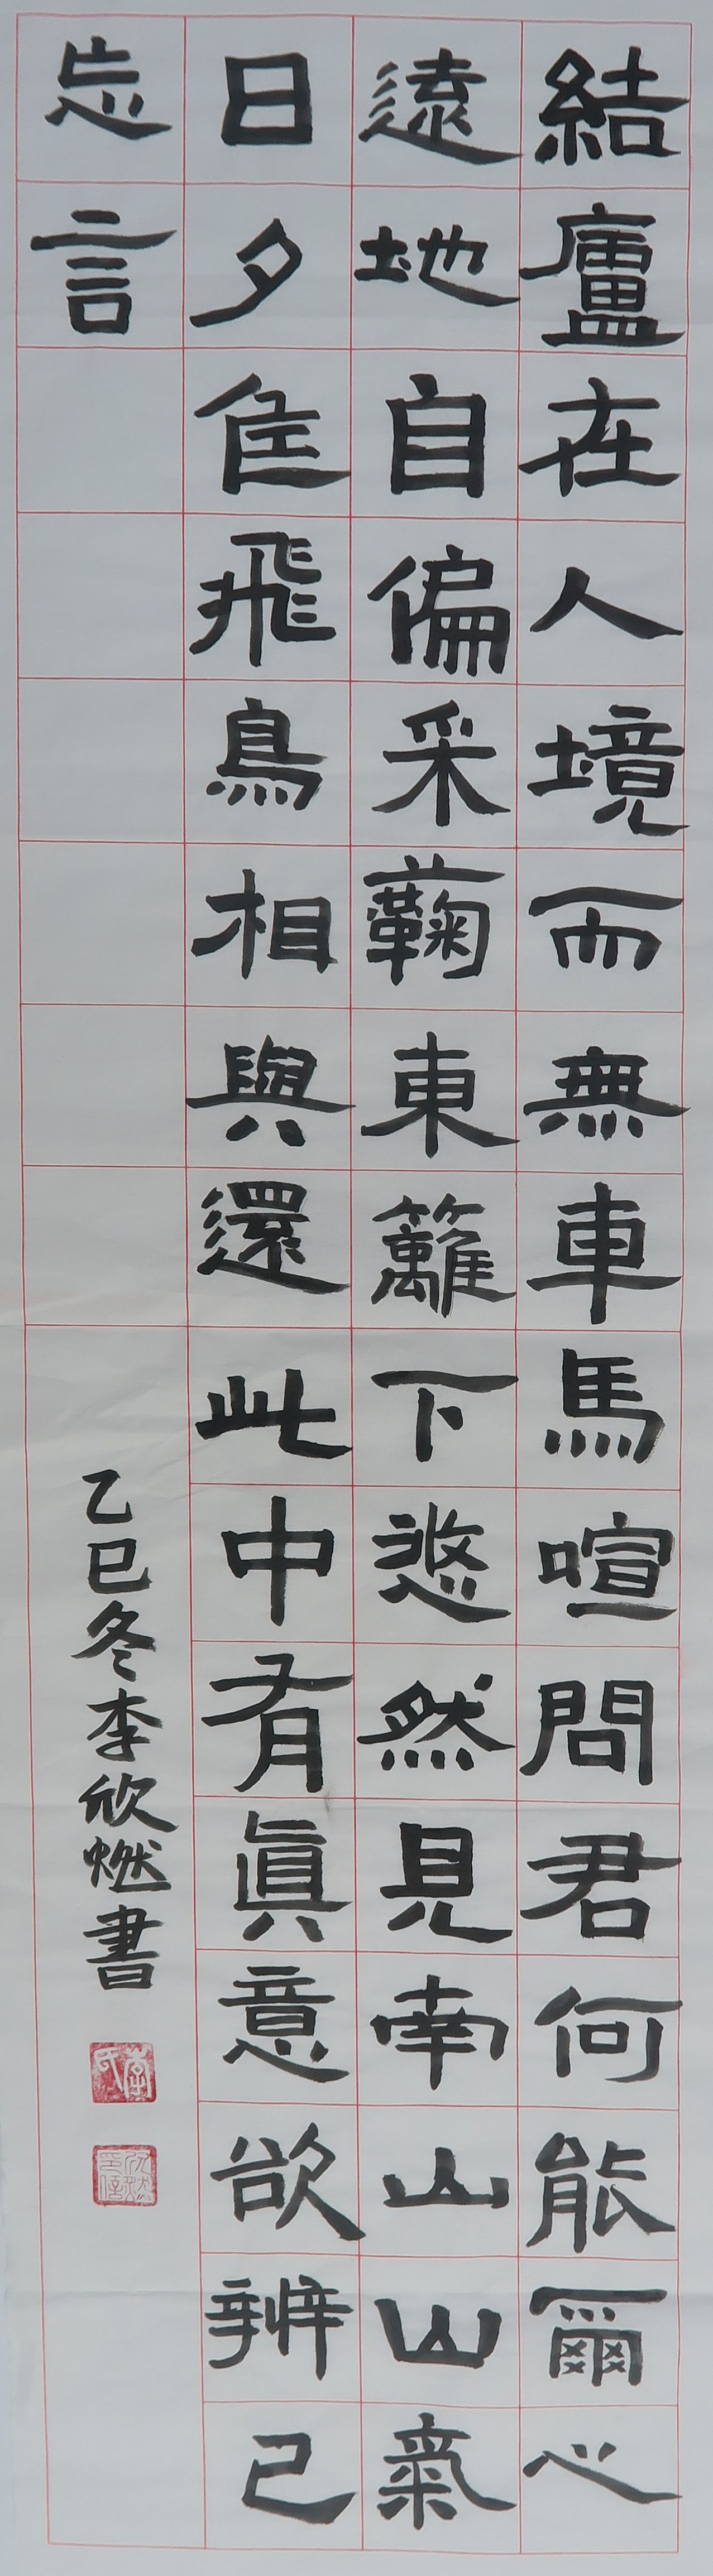 結廬在人境而無車馬喧問君何能爾心
遠地自偏采蘜東籬下悠然見南山山氣
日夕隹飛鳥相與還此中有眞意欲辨已
忘言
乙巳冬李欣燃書
李氏
欣燃印信